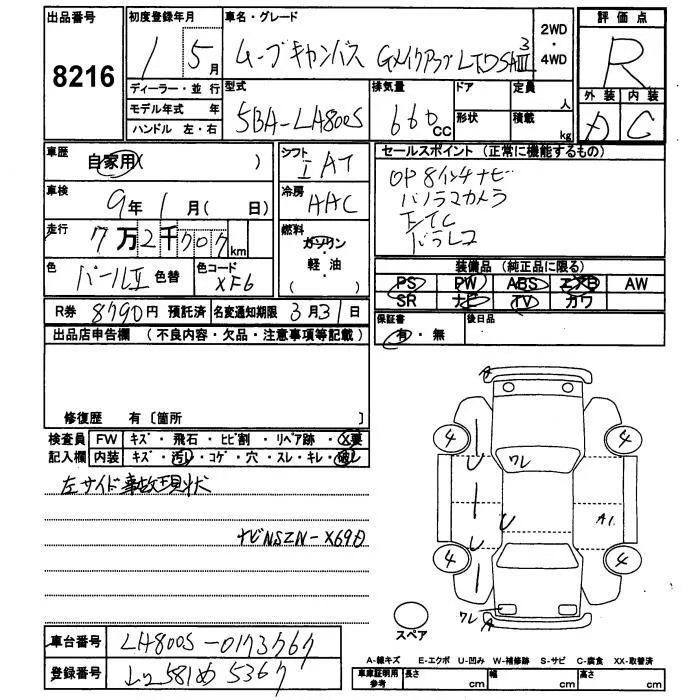 出品番号
8216
初度登録年月
1 5月
ディーラー・並行
モデル年式 年
ハンドル 左・右
車名・グレード
ムーブキャンバス Gメイクアップ LTDSAⅢ
3
2WD
・
4WD
評価点
R
外装 内装
C
型式
5BA-LA800S
排気量
660cc
ドア
形状
定員
人
積載
kg
車歴
自家用( )
車検
9年1月( 日)
走行
7万2千707km
色
パールⅡ 色替
色コード
XF6
シフト
IAT
冷房
AAC
燃料
ガソリン
・
軽・油
( )
セールスポイント (正常に機能するもの)
OP8インチナビ
パノラマカメラ
ETC
ドラレコ
装備品 (純正品に限る)
PS PW ABS エアB AW
SR ナビ TV カワ
R券 8790円 預託済 名変通知期限 3月31日
保証書
有・無
後日品
出品店申告欄 (不良内容・欠品・注意事項等記載)
修復歴 有〔箇所 〕
検査員
記入欄
FW キズ・飛石・ヒビ割・リペア跡・X要
内装 キズ・汚レ・コゲ・穴・スレ・キレ・破レ
左サイド事故現状
ナビNSZN-X69D
4 4
ワレ
U
U
A1
U
4 4
ワレ
スペア
車台番号 LA800S-0173767
登録番号 581め5367
A-線キズ E-エクボ U-凹み W-補修跡 S-サビ C-腐食 XX-取替済
車庫証明用
参考
長さ cm 幅 cm 高さ cm